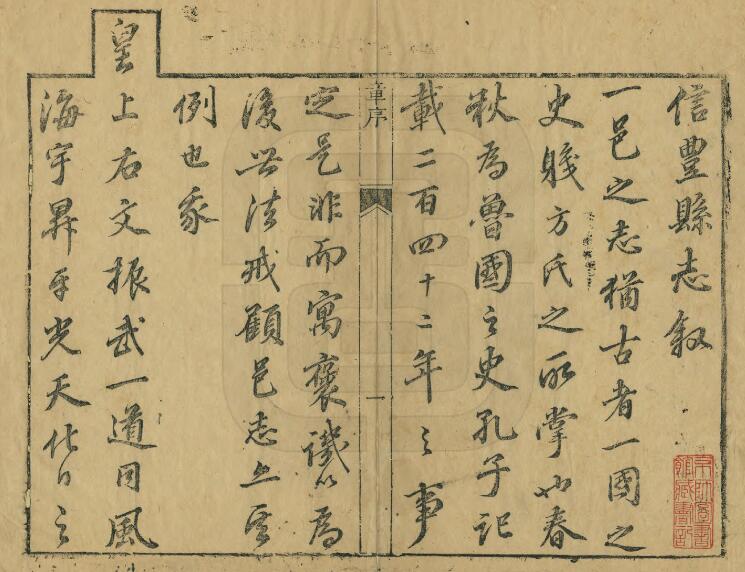 信豐縣志敘
一邑之志猶古者一國之
史賤方氏之所掌也春
秋為魯國之史孔子記
載二百四十二年之事
童序
一
定是非而寓褒譏以為
後世法戒顧邑志亦
例也我
皇上右文振武一道同風
海宇昇平光天化日之
京師圖書館藏書記